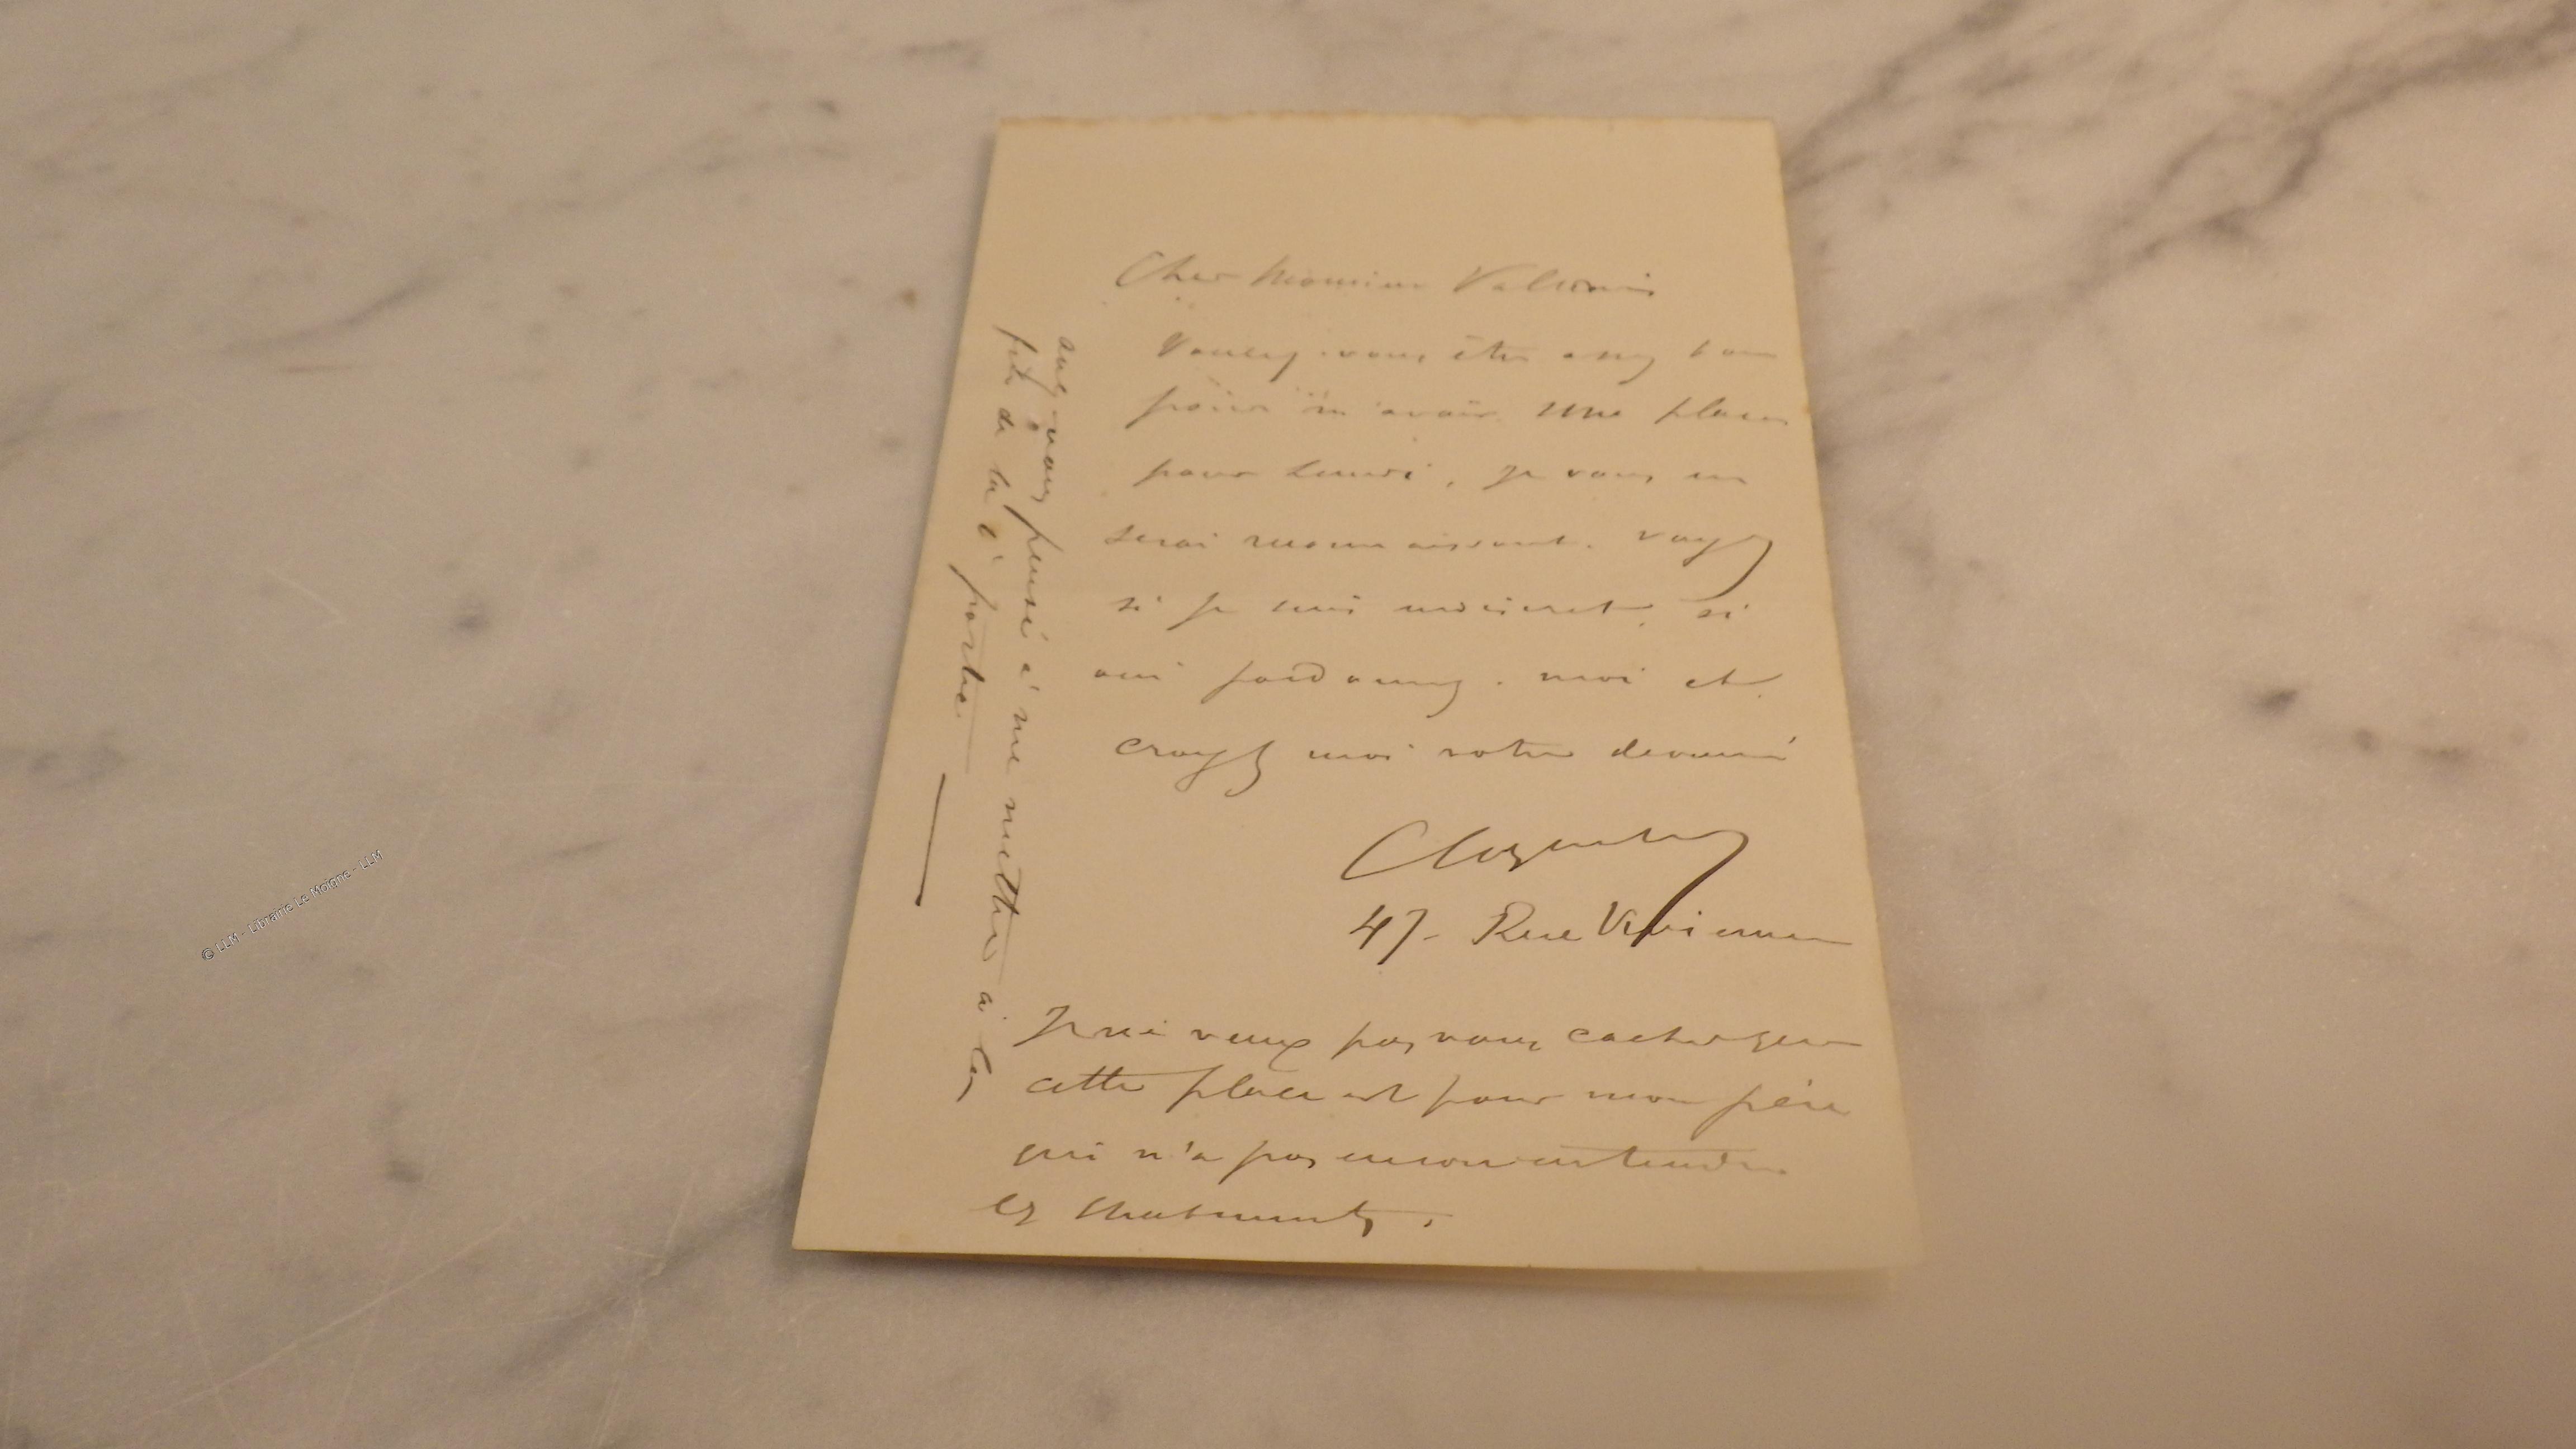 Cher Monsieur
Voulez-vous être assez bon
pour m'avoir une place
pour Lundi, je vous en
serai reconnaissant. voyez
si je suis indiscret, si
oui pardonnez-moi et
croyez moi votre devoué
47- Rue Vivienne
Je ne veux pas vous cacher que
cette place est pour mon père
qui n'a pas encore entendu
les chatiments.
avez vous pensé à me mettre à la
fête de la porte
© LLM - Librairie Le Moigne - LLM